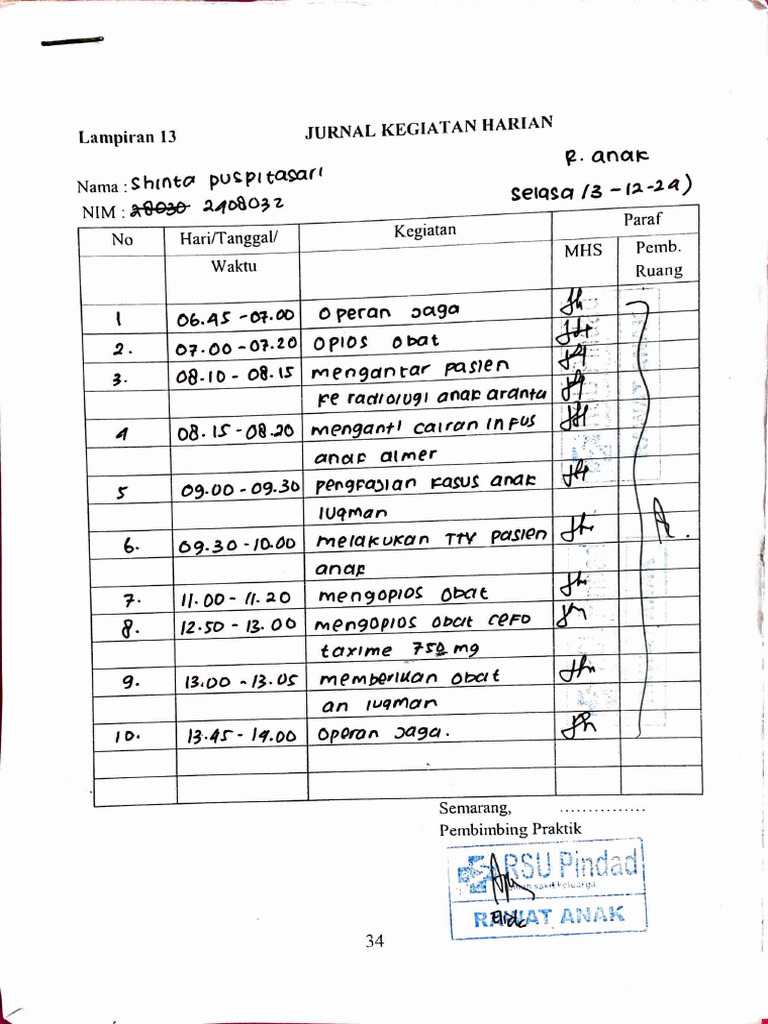 Lampiran 13
JURNAL KEGIATAN HARIAN
R. anak
Nama : Shinta puspitasari
Selasa (3-12-24)
NIM : 28030 2408032
No Hari/Tanggal/ Waktu Kegiatan Paraf
MHS Pemb. Ruang
1 06.45 - 07.00 Operan Jaga
2. 07.00 - 07.20 OPIOS Obat
3. 08.10 - 08.15 mengantar pasien
ke radiologi anak aranta
4 08.15 - 08.20 menganti cairan infus
anak almer
5 09.00 - 09.30 pengkajian kasus anak
luqman
6. 09.30 - 10.00 melakukan TTV pasien
anak
7. 11.00 - 11.20 mengopios obat
8. 12.50 - 13.00 mengopios obat cefo
taxime 750 mg
9. 13.00 - 13.05 memberikan obat
an luqman
10. 13.45 - 14.00 Operan Jaga.
Semarang, ...............
Pembimbing Praktik
RSU Pindad
rumah sakit keluarga
RAWAT ANAK
34